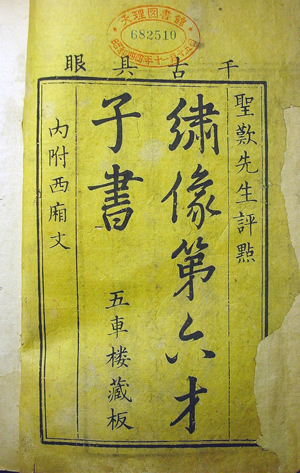 文理図書館
682510
千古具眼
聖歎先生評點
繡像第六才
子書
五車楼藏板
內附西廂文